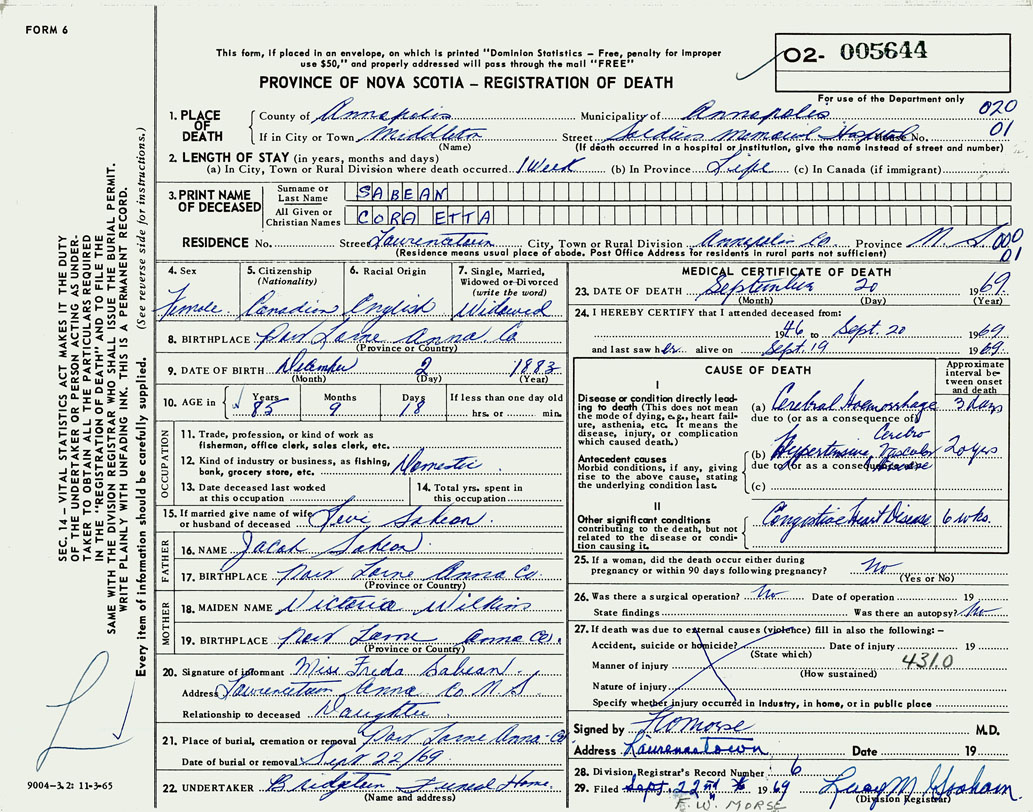 FORM 6
This form, if placed in an envelope, on which is printed "Dominion Statistics – Free, penalty for improper
use $50," and properly addressed will pass through the mail "FREE"
PROVINCE OF NOVA SCOTIA – REGISTRATION OF DEATH
O2- 005644
For use of the Department only
1. PLACE OF DEATH
County of Annapolis Municipality of Annapolis 020
If in City or Town Middleton Street Soldiers Memorial Hospital No. 01
(Name) (If death occurred in a hospital or institution, give the name instead of street and number)
2. LENGTH OF STAY (in years, months and days)
(a) In City, Town or Rural Division where death occurred 1 Week (b) In Province Life (c) In Canada (if immigrant)
3. PRINT NAME OF DECEASED
Surname or Last Name SABEAN
All Given or Christian Names CORA ETTA
RESIDENCE No. Street Lawrencetown City, Town or Rural Division Annapolis Co. Province N. S. 000
01
(Residence means usual place of abode. Post Office Address for residents in rural parts not sufficient)
4. Sex
Female
5. Citizenship
(Nationality)
Canadian
6. Racial Origin
English
7. Single, Married,
Widowed or Divorced
(write the word)
Widowed
8. BIRTHPLACE Port Lorne Anna. Co
(Province or Country)
9. DATE OF BIRTH December 2 1883
(Month) (Day) (Year)
10. AGE in
Years Months Days If less than one day old
85 9 18 hrs. or min.
OCCUPATION
11. Trade, profession, or kind of work as
fisherman, office clerk, sales clerk, etc.
12. Kind of industry or business, as fishing,
bank, grocery store, etc. Domestic
13. Date deceased last worked
at this occupation
14. Total yrs. spent in
this occupation
15. If married give name of wife
or husband of deceased Levi Sabean
FATHER
16. NAME Jacob Sabean
17. BIRTHPLACE Port Lorne Anna Co.
(Province or Country)
MOTHER
18. MAIDEN NAME Victoria Wilkins
19. BIRTHPLACE Port Lorne Anna Co.
(Province or Country)
20. Signature of informant Miss Freda Sabean
Address Lawrencetown Anna Co N S
Relationship to deceased Daughter
21. Place of burial, cremation or removal Port Lorne Anna Co
Date of burial or removal Sept 22/69
22. UNDERTAKER Bridgetown Funeral Home
(Name and address)
MEDICAL CERTIFICATE OF DEATH
23. DATE OF DEATH September 20 1969.
(Month) (Day) (Year)
24. I HEREBY CERTIFY that I attended deceased from:
1946 to Sept. 20 1969
and last saw her alive on Sept. 19 1969.
CAUSE OF DEATH
Approximate
interval be-
tween onset
and death
I
Disease or condition directly lead-
ing to death (This does not mean
the mode of dying, e.g., heart fail-
ure, asthenia, etc. It means the
disease, injury, or complication
which caused death.)
(a) Cerebral Haemorrhage 3 days
due to (or as a consequence of)
Antecedent causes
Morbid conditions, if any, giving
rise to the above cause, stating
the underlying condition last.
Cerebro
(b) Hypertensive Vascular 20 yrs
due to (or as a consequence of) Disease
(c)
II
Other significant conditions
contributing to the death, but not
related to the disease or condi-
tion causing it.
Congestive Heart Disease 6 wks.
25. If a woman, did the death occur either during
pregnancy or within 90 days following pregnancy? No
(Yes or No)
26. Was there a surgical operation? No Date of operation 19
State findings Was there an autopsy? No
27. If death was due to external causes (violence) fill in also the following: –
Accident, suicide or homicide? Date of injury 19
(State which)
4310
Manner of injury
(How sustained)
Nature of injury
Specify whether injury occurred in industry, in home, or in public place
Signed by M.D.
Address Lawrencetown Date 19
28. Division Registrar's Record Number 6
29. Filed Sept. 22nd 1969 Lucy M Graham
(Division Registrar)
F. W. MORSE
SEC. 14 – VITAL STATISTICS ACT MAKES IT THE DUTY
OF THE UNDERTAKER OR PERSON ACTING AS UNDER-
TAKER TO OBTAIN ALL THE PARTICULARS REQUIRED
IN THE "REGISTRATION OF DEATH" AND TO FILE THE
SAME WITH THE DIVISION REGISTRAR WHO SHALL ISSUE THE BURIAL PERMIT.
WRITE PLAINLY WITH UNFADING INK. THIS IS A PERMANENT RECORD.
Every item of information should be carefully supplied. (See reverse side for instructions.)
9004-3.2: 11-3-65